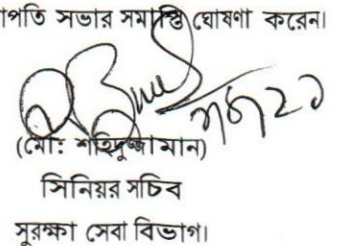 পতি সভার সমাপ্তি ঘোষণা করেন।
(মোঃ শহিদুজ্জামান)
সিনিয়র সচিব
সুরক্ষা সেবা বিভাগ।